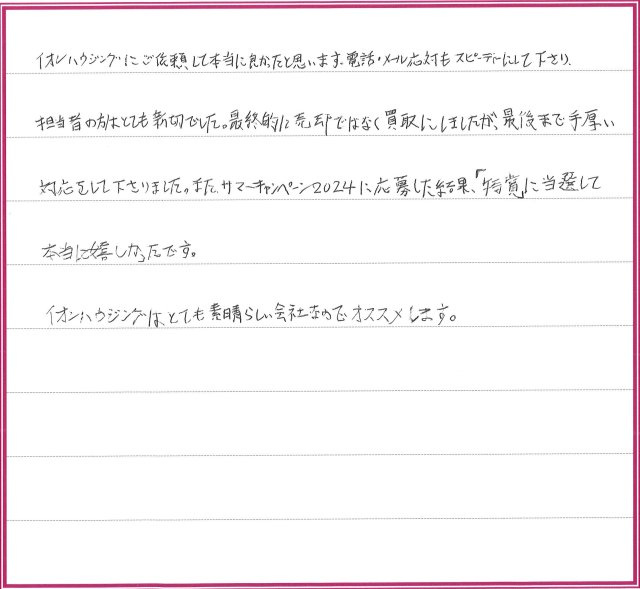 イオンハウジングにご依頼して本当に良かったと思います。電話・メール応対もスピーディーにして下さり、
担当者の方はとても親切でした。最終的に売却ではなく買取にしましたが、最後まで手厚い
対応をして下さりました。また、サマーキャンペーン2024に応募した結果、「特賞」に当選して
本当に嬉しかったです。
イオンハウジングはとても素晴らしい会社なのでオススメします。